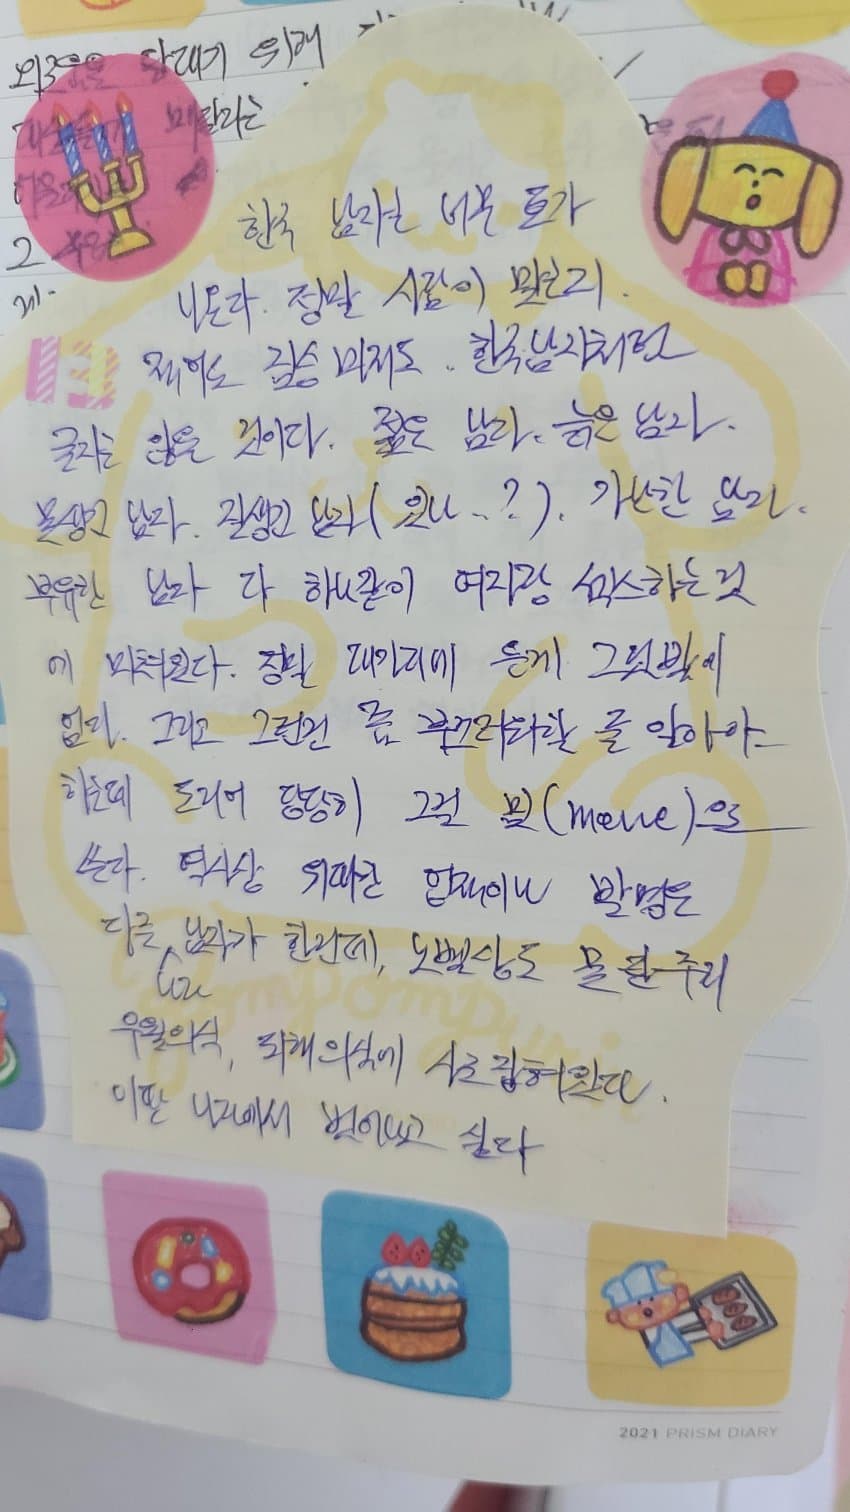 외로움을 달래기 위해
바란다는
그
게.
한국 남자는 너무 토가
나온다. 정말 사람이 맞는지.
적어도 짐승마저도. 한국남자처럼
굴지는 않을 것이다. 젊은 남자. 늙은 남자.
못생긴 남자. 잘생긴 남자(있나..?). 가난한 남자.
부유한 남자 다 하나같이 여자랑 섹스하는 것
에 미쳐있다. 정말 대가리에 든게 그것밖에
없다. 그리고 그런건 좀 부끄러워할 줄 알아야
하는데 도리어 당당히 그걸 밈(meme)으로
쓴다. 역사상 위대한 업적이나 발명은
다른 남자가 한건데, 노벨상도 못 탄 주제
우월의식, 피해의식에 사로잡혀있다.
이딴 나라에서 벗어나고 싶다
pompompuri
2021 PRISM DIARY